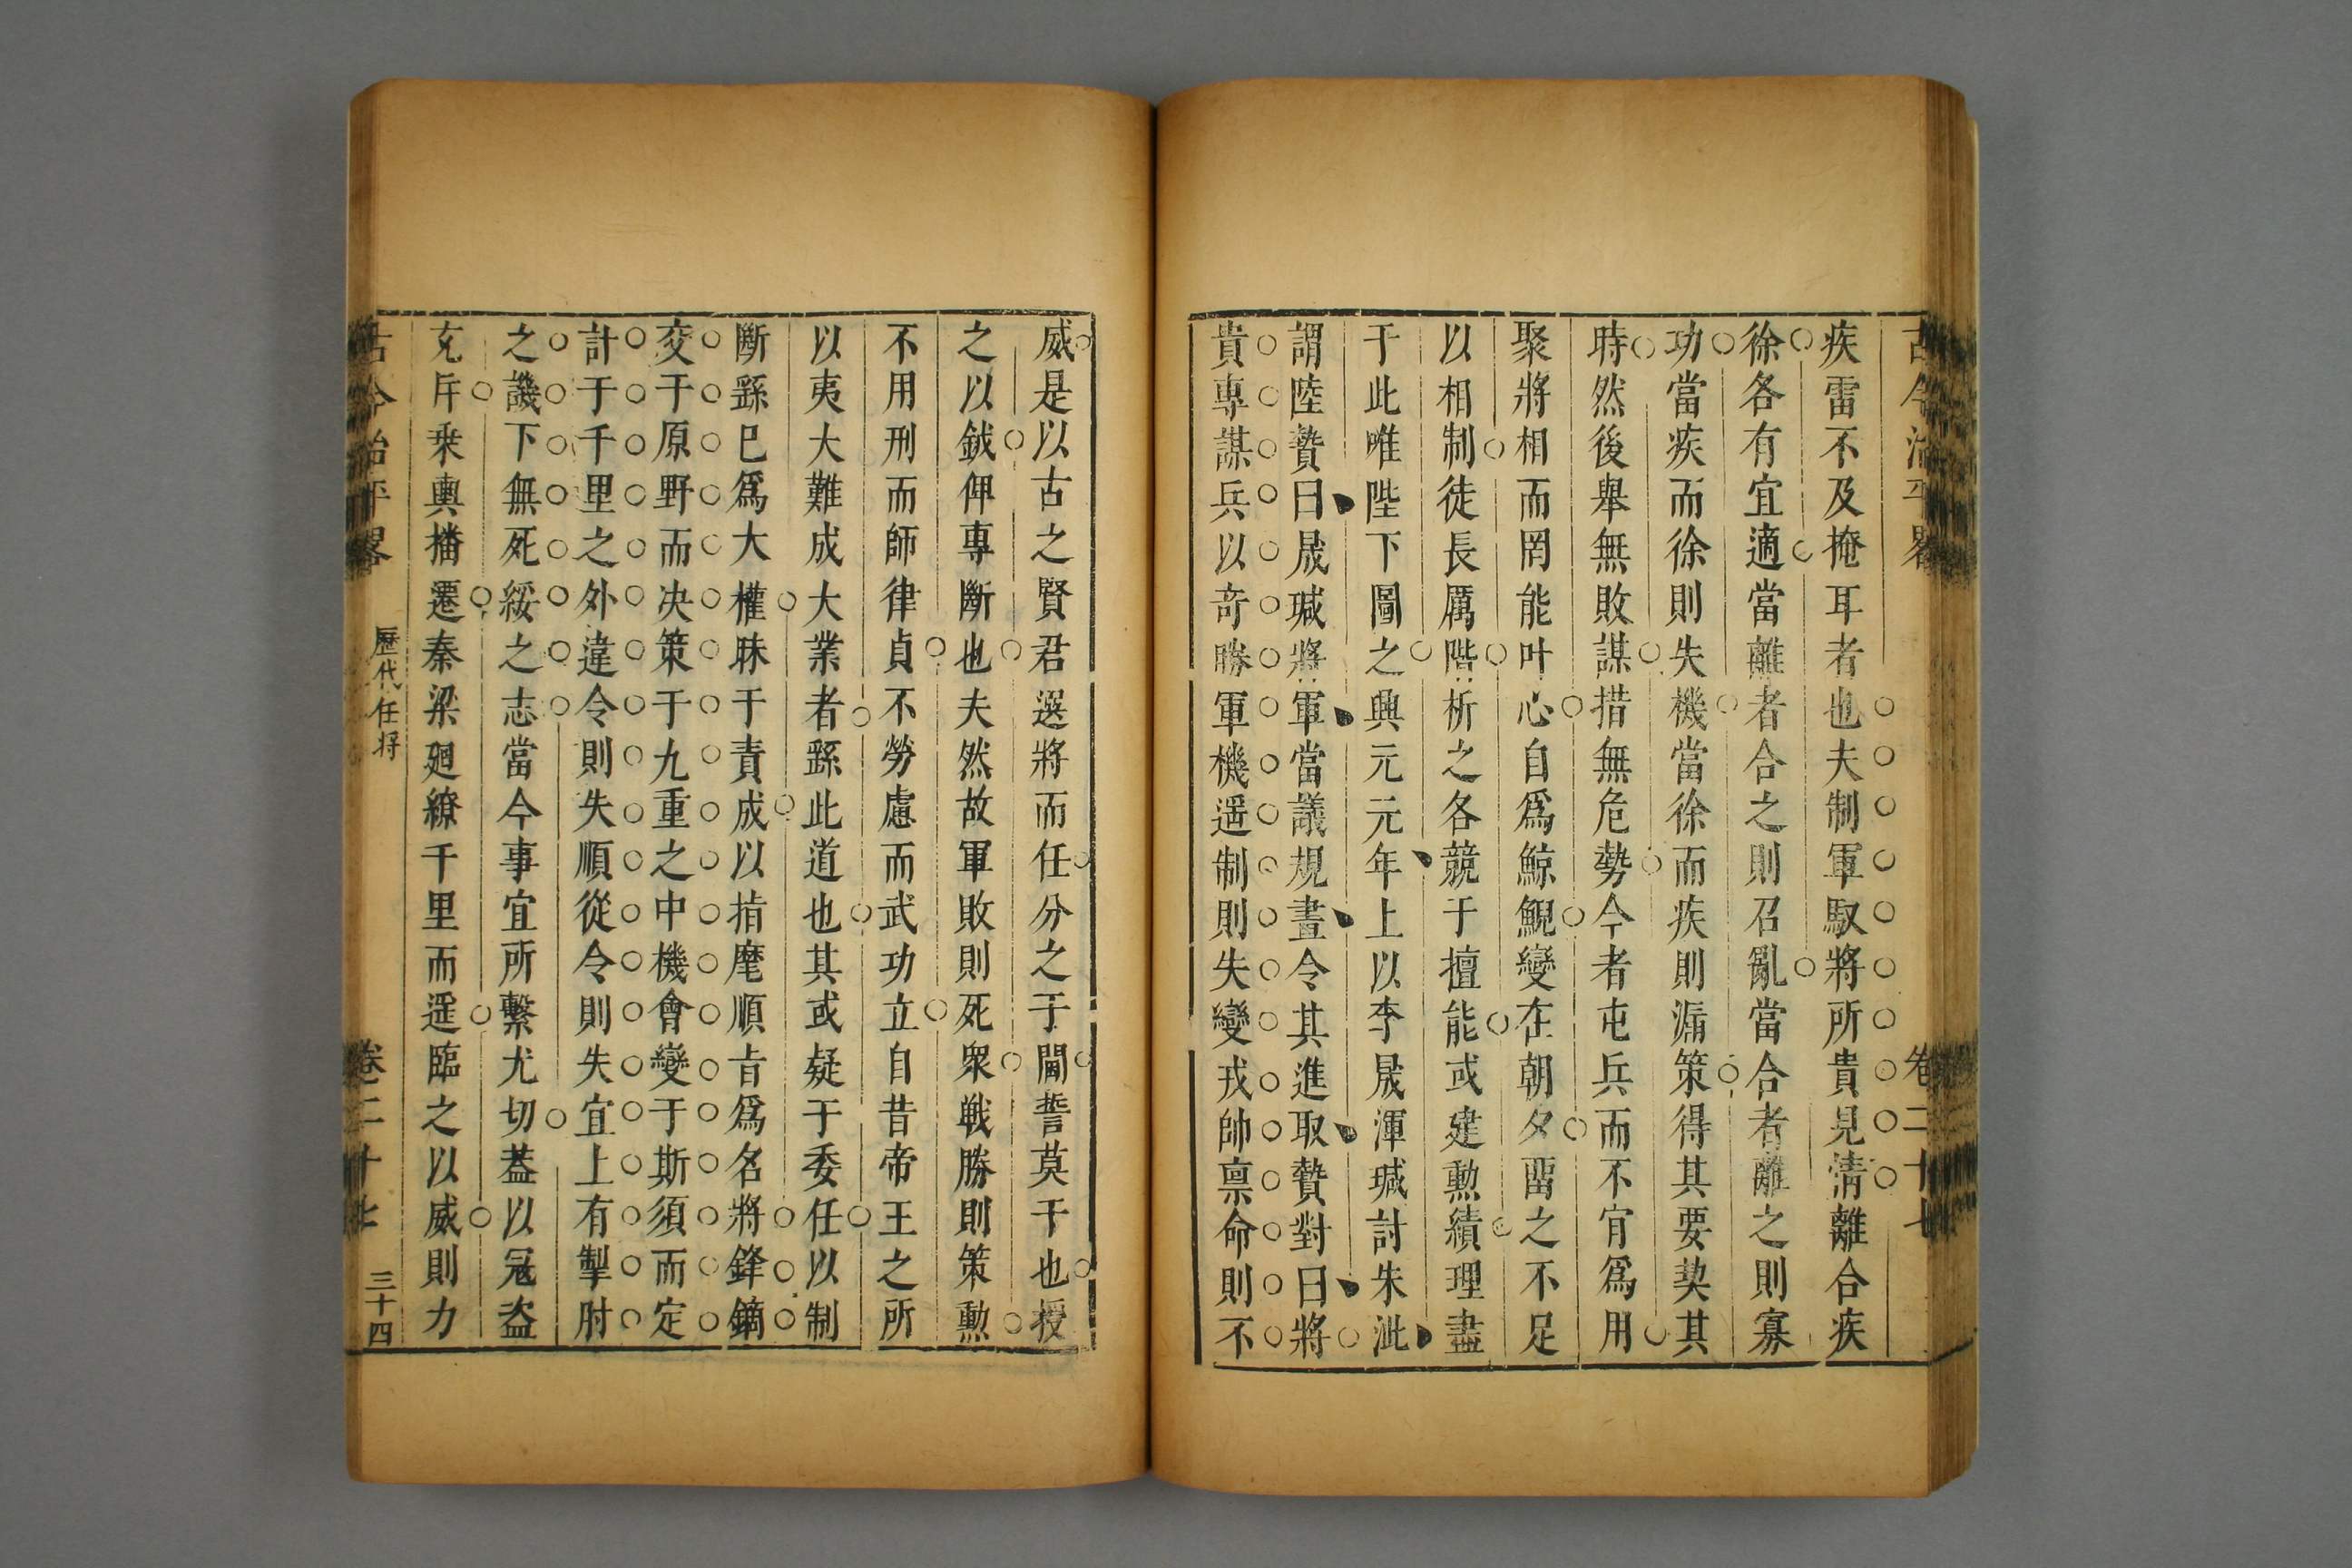 古今治平畧 卷二十七
疾雷不及掩耳者也夫制軍馭將所貴見情離合疾
徐各有宜適當離者合之則召亂當合者離之則寡
功當疾而徐則失機當徐而疾則漏策得其要契其
時然後舉無敗謀措無危勢今者屯兵而不肎爲用
聚將相而罔能叶心自爲鯨鯢變在朝夕畱之不足
以相制徒長厲階析之各競于擅能或建勲績理盡
于此唯陛下圖之興元元年上以李晟渾瑊討朱泚
謂陸贄曰晟瑊將軍當議規畫令其進取贄對曰將
貴專謀兵以竒勝軍機遥制則失變戎帥禀命則不
威是以古之賢君選將而任分之于閫誓莫干也授
之以鉞俾專斷也夫然故軍敗則死衆戰勝則策勲
不用刑而師律貞不勞慮而武功立自昔帝王之所
以夷大難成大業者繇此道也其或疑于委任以制
斷繇巳爲大權昧于責成以指麾順㫖爲名將鋒鏑
交于原野而决策于九重之中機會變于斯須而定
計于千里之外違令則失順從令則失宜上有掣肘
之譏下無死綏之志當今事宜所繫尤切葢以冦盗
充斥乗輿播遷秦梁廻繚千里而遥臨之以威則力
古今治平畧 歷代任將 卷二十七 三十四